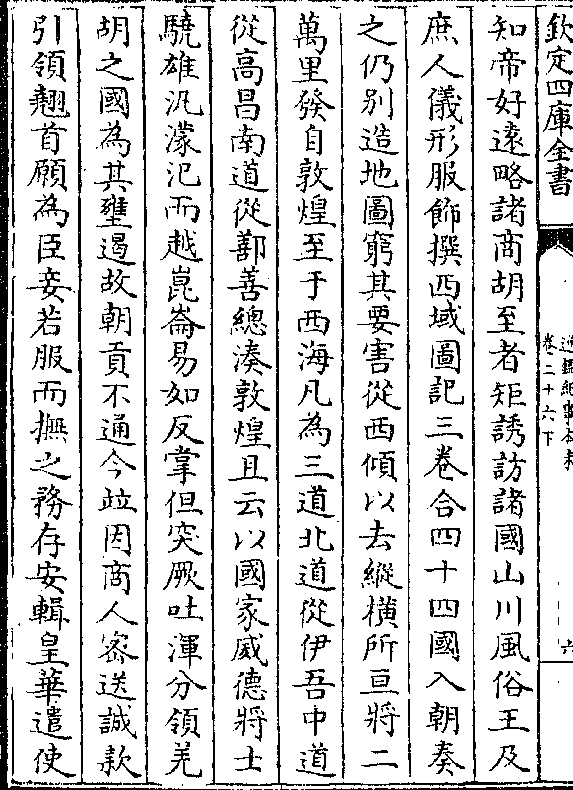 欽定四庫全書
通鑑紀事本末
卷二十六下
六
知帝好遠略諸商胡至者矩誘訪諸國山川風俗王及
庶人儀形服飾撰西域圖記三卷合四十四國入朝奏
之仍别造地圖窮其要害從西傾以去縱横所亘將二
萬里發自敦煌至于西海凡為三道北道從伊吾中道
從高昌南道從鄯善總湊敦煌且云以國家威德將士
驍雄汎濛汜而越崑崙易如反掌但突厥吐渾分領羌
胡之國為其壅遏故朝貢不通今竝因商人密送誠款
引領翹首願為臣妾若服而撫之務存安輯皇華遣使